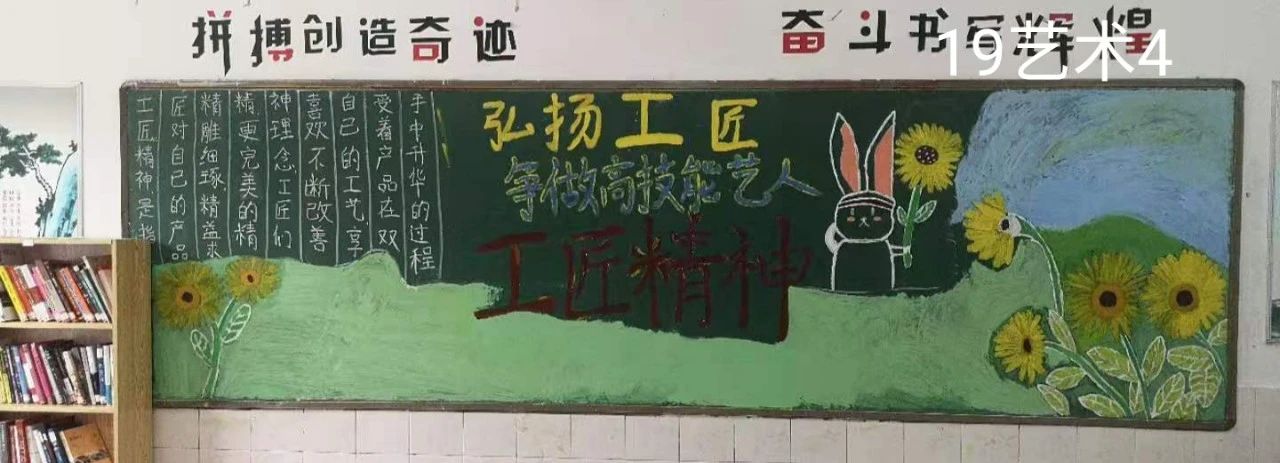 拼搏创造奇迹
奋斗书写辉煌
19艺术4
弘扬工匠
争做高技能艺人
工匠精神
工匠精神是指
匠对自己的产品
精雕细琢,精益求
精,更完美的精
神理念,工匠们
喜欢不断改善
自己的工艺,享
受着产品在双
手中升华的过程